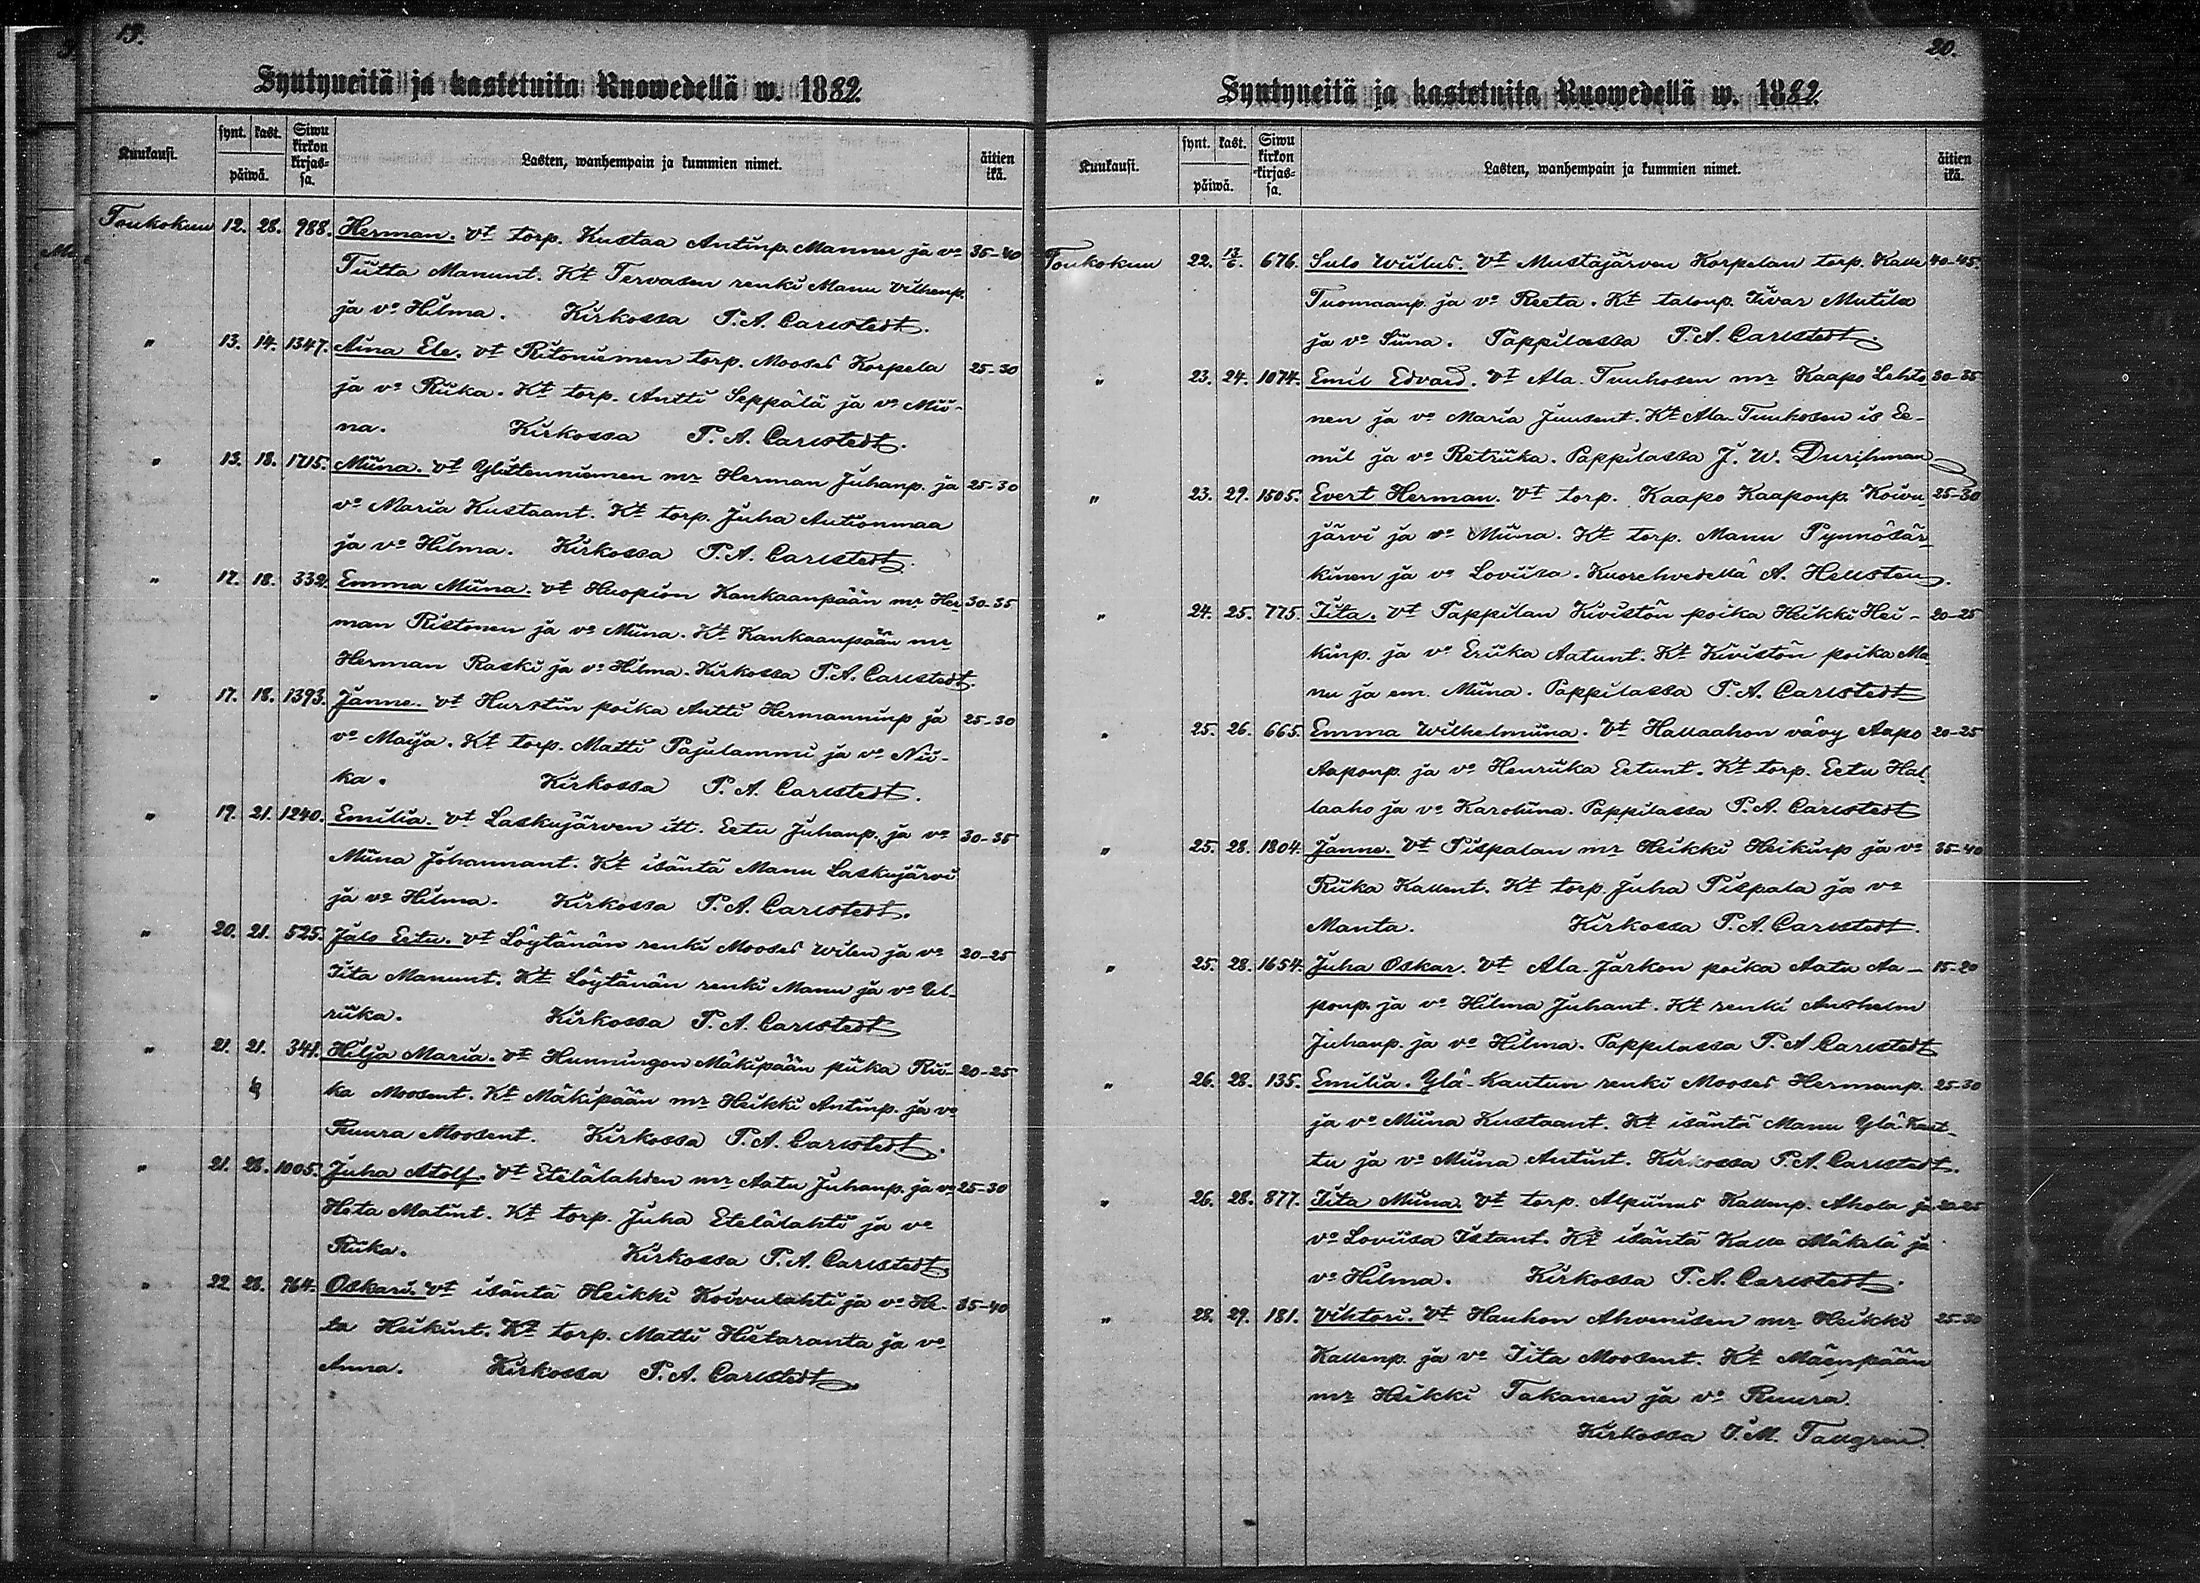 19.
Syntyneitä ja kastetuita Ruowedellä w. 1882.
Kuukausi.
synt. kast.
päiwä.
Siwu
kirkon
kirjas-
sa.
Lasten, wanhempain ja kummien nimet.
äitien
ikä.
Toukokuu 12. 28. 988. Herman. Vt torp. Kustaa Antinp. Manner ja vo 35-40
Tiitta Manunt. Kt Tervasen renki Manu Vilhenp.
ja vo Hilma. Kirkossa P. A. Carlstedt.
" 13. 14. 1347. Aina Ele. Vt Ritoniemen torp. Mooses Korpela 25-30
ja vo Riika. Kt torp. Antti Seppälä ja vo Mii-
na. Kirkossa P. A. Carlstedt.
" 13. 18. 1715. Miina. Vt Ylistenniemen mr Herman Juhanp. ja 25-30
vo Maria Kustaant. Kt torp. Juha Autionmaa
ja vo Hilma. Kirkossa P. A. Carlstedt.
" 17. 18. 339. Emma Miina. Vt Huopion Kankaanpään mr Her 30-35
man Ristonen ja vo Miina. Kt Kankaanpään mr
Herman Raski ja vo Hilma. Kirkossa P. A. Carlstedt.
" 17. 18. 1393. Janne. Vt Hurstin poika Antti Hermanninp ja 25-30
vo Maija. Kt torp. Matti Pajulammi ja vo Nii-
ka. Kirkossa P. A. Carlstedt.
" 19. 21. 1240. Emilia. Vt Laskujärven itt. Eetu Juhanp. ja vo 30-35
Miina Johannant. Kt isäntä Manu Laskujärvi
ja vo Hilma. Kirkossa P. A. Carlstedt.
" 20. 21. 525. Jalo Eetu. Vt Löytänän renki Mooses Wilen ja vo 20-25
Iita Manunt. Kt Löytänän renki Manu ja vo Ul-
riika. Kirkossa P. A. Carlstedt
" 21. 21. 341. Hilja Maria. Vt Hunningon Mäkipään piika Rii- 20-25
ka Moosent. Kt Mäkipään mr Heikki Antinp. ja vo
Ruura Moosent. Kirkossa P. A. Carlstedt.
" 21. 28. 1005. Juha Adolf. Vt Etelälahden mr Aatu Juhanp. ja vo 25-30
Heta Matint. Kt torp. Juha Etelälahti ja vo
Riika. Kirkossa P. A. Carlstedt
" 22 28. 764. Oskari. Vt isäntä Heikki Koivulahti ja vo He- 35-40
ta Heikint. Kt torp. Matti Hietaranta ja vo
Anna. Kirkossa P. A. Carlstedt
20.
Syntyneitä ja kastetuita Ruowedellä w. 1882.
Kuukausi.
synt. kast.
päiwä.
Siwu
kirkon
kirjas-
sa.
Lasten, wanhempain ja kummien nimet.
äitien
ikä.
Toukokuu 22. 676. Sulo Wiilus. Vt Mustajärven Korpelan torp. Kalle 40-45.
Tuomaanp. ja vo Reeta. Kt talonp. Iivar Mutila
ja vo Siina. Pappilassa P. A. Carlstedt.
" 23. 24. 1074. Emil Edvard. Vt Ala-Tuuhosen mr Kaapo Lehto 30-35
nen ja vo Maria Juusent. Kt Ala-Tuuhosen is Ee-
mil ja vo Retriika. Pappilassa J. W. Durchman
" 23. 29. 1505. Evert Herman. Vt torp. Kaapo Kaaponp. Koivu 25-30
järvi ja vo Miina. Kt torp. Manu Pynnösär-
kinen ja vo Loviisa. Kuorehvedellä A. Hellsten.
" 24. 25. 775. Iita. Vt Pappilan Kivistön poika Heikki Hei- 20-25
kinp. ja vo Eriika Aatunt. Kt Kivistön poika Ma
nu ja em. Miina. Pappilassa P. A. Carlstedt
" 25. 26. 665. Emma Wilhelmiina. Vt Hallaahon vävy Aapo 20-25
Aaponp. ja vo Henriika Eetunt. Kt torp. Eetu Hal-
laaho ja vo Karoliina. Pappilassa P. A. Carlstedt
" 25. 28. 1804. Janne. Vt Pispalan mr Heikki Heikinp ja vo 35-40
Riika Kallent. Kt torp. Juha Pispala ja vo
Manta. Kirkossa P. A. Carlstedt.
" 25. 28. 1654. Juha Oskar. Vt Ala-Jarkon poika Aatu Aa- 15-20
ponp. ja vo Hilma Juhant. Kt renki Anshelm
Juhanp. ja vo Hilma. Pappilassa P. A Carlstedt
" 26. 28. 135. Emilia. Ylä-Kautun renki Mooses Hermanp. 25-30
ja vo Miina Kustaant. Kt isäntä Manu Ylä-Kaut-
tu ja vo Miina Antint. Kirkossa P. A. Carlstedt.
" 26. 28. 877. Iita Miina. Vt torp. Alpiinus Kallenp. Ahola ja 20-25
vo Loviisa Istant. Kt isäntä Kalle Mäkelä ja
vo Hilma. Kirkossa P. A. Carlstedt.
" 28. 29. 181. Vihtori. Vt Hauhon Ahvenisen mr Heikki 25-30
Kallenp. ja vo Iita Moosent. Kt Mäenpään
mr Heikki Takanen ja vo Ruura.
Kirkossa I. M. Tallgren.